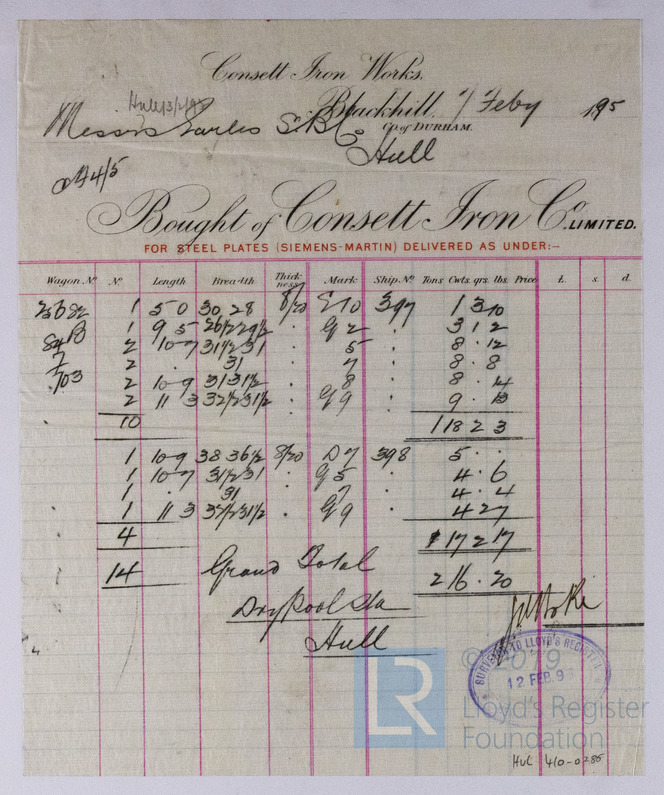 Consett Iron Works,
Blackhill, 7 Feby 1895
Co. of DURHAM.
Messrs Earles S. B. Co
Hull
Bought of Consett Iron Co. LIMITED.
FOR STEEL PLATES (SIEMENS-MARTIN) DELIVERED AS UNDER:—
Wagon. No. No. Length Breadth Thickness Mark Ship. No. Tons Cwts. qrs. lbs. Price £. s. d.
1 5 0 30, 28 8/20 397 1 3 10
1 9 5 26 1/2 29 1/2 . G 2 : 3 1 2
2 10-7 31 1/2 31 . 5 . 8 . 12
2 . 31 . 7 : 8 . 8
703 2 10-9 31 31 1/2 . 8 . 8 . 14
2 11 3 32 1/2 31 1/2 . G 9 : 9 .
10 1 18 2 3
1 10-9 38 36 1/2 8/20 D 7 398 5 . .
1 10-7 31 1/2 31 . G 5 . 4 . 6
1 . 31 . 7 . 4 . 4
1 11 3 32 1/2 31 1/2 . G 9 : 4 2 7
4 17 2 17
14 Grand Total 2 16 . 20
Drypool Sta
Hull
SURVEYOR TO LLOYD'S REGISTER
12 FEB. 9
© 2019
LR
Lloyd's Register
Foundation
HUL 410-0285